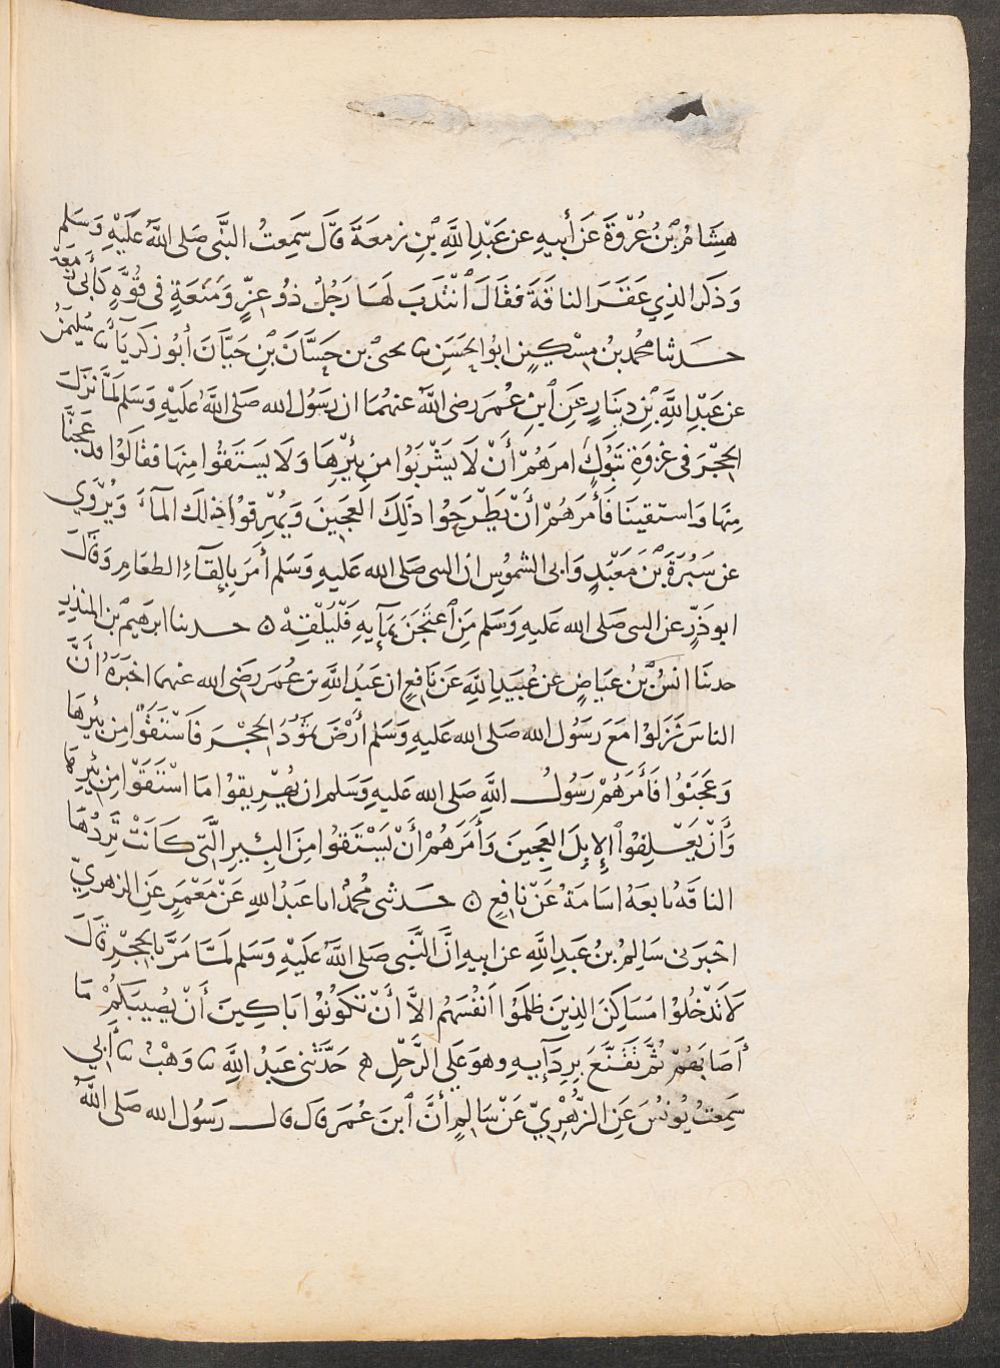 هِشَامُ بْنُ عُرْوَةَ عَنْ أَبِيهِ عن عَبْدِ اللَّهِ بْنِ زمعَةَ قَالَ سَمِعتُ النَّبِي صَلى اللَّهُ عَلَيْهِ وَسَلم
وَذَكَر الذِي عَقَرَ الناقَةَ فقَالَ انْتَدَبَ لَهَا رَجُلٌ ذُو عِزٍّ وَمَنَعَةٍ فى قُوَّةٍ كَأَبى زَمعَة
حَدثنا محُمد بنُ مِسْكِينٍ ابُو الحَسَنِ نا يحيى بن حَسَّانَ بْنِ حَيَّانَ أبُو زَكَرِيَآءَ نا سُلَيمَنُ
عن عَبْدِ اللَّهِ بْنِ دِينَارٍ عَنِ ابنِ عُمَرَ رضى اللَّه عنهمَا ان رَسُولَ الله صَلى اللَّهُ عَلَيْهِ وَسَلم لَمَّا نَزَلَ
الحِجْرَ فى غزوَةِ تَبُوكَ امرَهُمْ أَنْ لَا يَشْرَبُوا من بِئْرِهَا وَلَا يَستَقُوا مِنهَا فقَالَوُا قد عَجَنَّا
مِنهَا وَاستَقينَا فَأَمَرَهُمْ أَنْ يَطْرَحُوا ذَلِكَ العَجِينَ وَيُهرِقوُا ذَالك المآءَ وَيُرْوَى
عن سَبُرَةَ بْنِ مَعْبَدٍ وَابى الشموُسِ ان النبى صَلى الله عَليهِ وَسَلم أَمَرَ بِإِلقَآءِ الطعَامِ وَقَالَ
ابو ذَرٍّ عن النبى صَلى الله عَليهِ وَسَلم مَنِ اعتَجَنَ بمَآيِهِ فَلْيُلْقِهْ ه حدثنا ابرَهيمُ بن المنذِرِ
حدثنَا انَسُ بْنُ عِيَاضٍ عن عُبَيدِ اللَّهِ عَنْ نَافِعٍ ان عَبُدَ اللَّهِ بن عُمَرَ رَضِى الله عنهما اخبَرَهُ أَنَّ
الناسَ نَزَلوُا مَعَ رَسُول الله صَلى الله عَليهِ وَسَلم أَرْضَ ثَمُودَ الحِجْرَ فَاسْتَقَوْا مِن بِئرِهَا
وَعَجَنوُا فَأَمَرَهُمْ رَسُولُ اللَّهِ صَلى الله عَليهِ وَسَلم ان يُهَرِيقوُا مَا اسْتَقَوْا مِن بِئرِهَا
وَأَنْ يَعْلِفوُا الإِبِلَ العَجِينَ وَأَمَرَهُمْ أَنْ يَسْتَقوُا مِنَ البِئيرِ الَّتِى كَانَتْ تَرِدُهَا
الناقَة تابعَهُ اسَامَةُ عَنْ نَافِعٍ ه حَدثنى مُحُمدٌ انا عَبدُ اللهِ عَنْ مَعْمَرٍ عَنِ الزهرِيِّ
اخبَرَنى سَالِمُ بنُ عَبدِ اللَّهِ عن ابيهِ انَّ النَّبى صَلى اللَّهُ عَلَيْهِ وَسَلم لَمَّا مَرَّ بِالحِجْرِ قَالَ
لَا تَدْخُلوُا مَسَاكِنَ الذِينَ ظلَمَوُا اَنفُسَهُم الاَّ أَنْ تَكوُنوُا بَاكِينَ أَنْ يُصِيبَكمُ مَا
أَصَابَهُمْ ثُمَّ تَقَنَّعَ بِرِدَآيِهِ وهوَ عَلَى الرَّحْلِ ه حَدَّثَنِى عَبدُ اللَّهِ نا وَهْبٌ نا أَبِي
سَمِعتُ يُونُسَ عَنِ الزُّهْرِيِّ عَنْ سَالِمٍ أَنَّ ابنَ عُمَرَ قَالَ قال رَسُولُ الله صَلى اللَّهُ